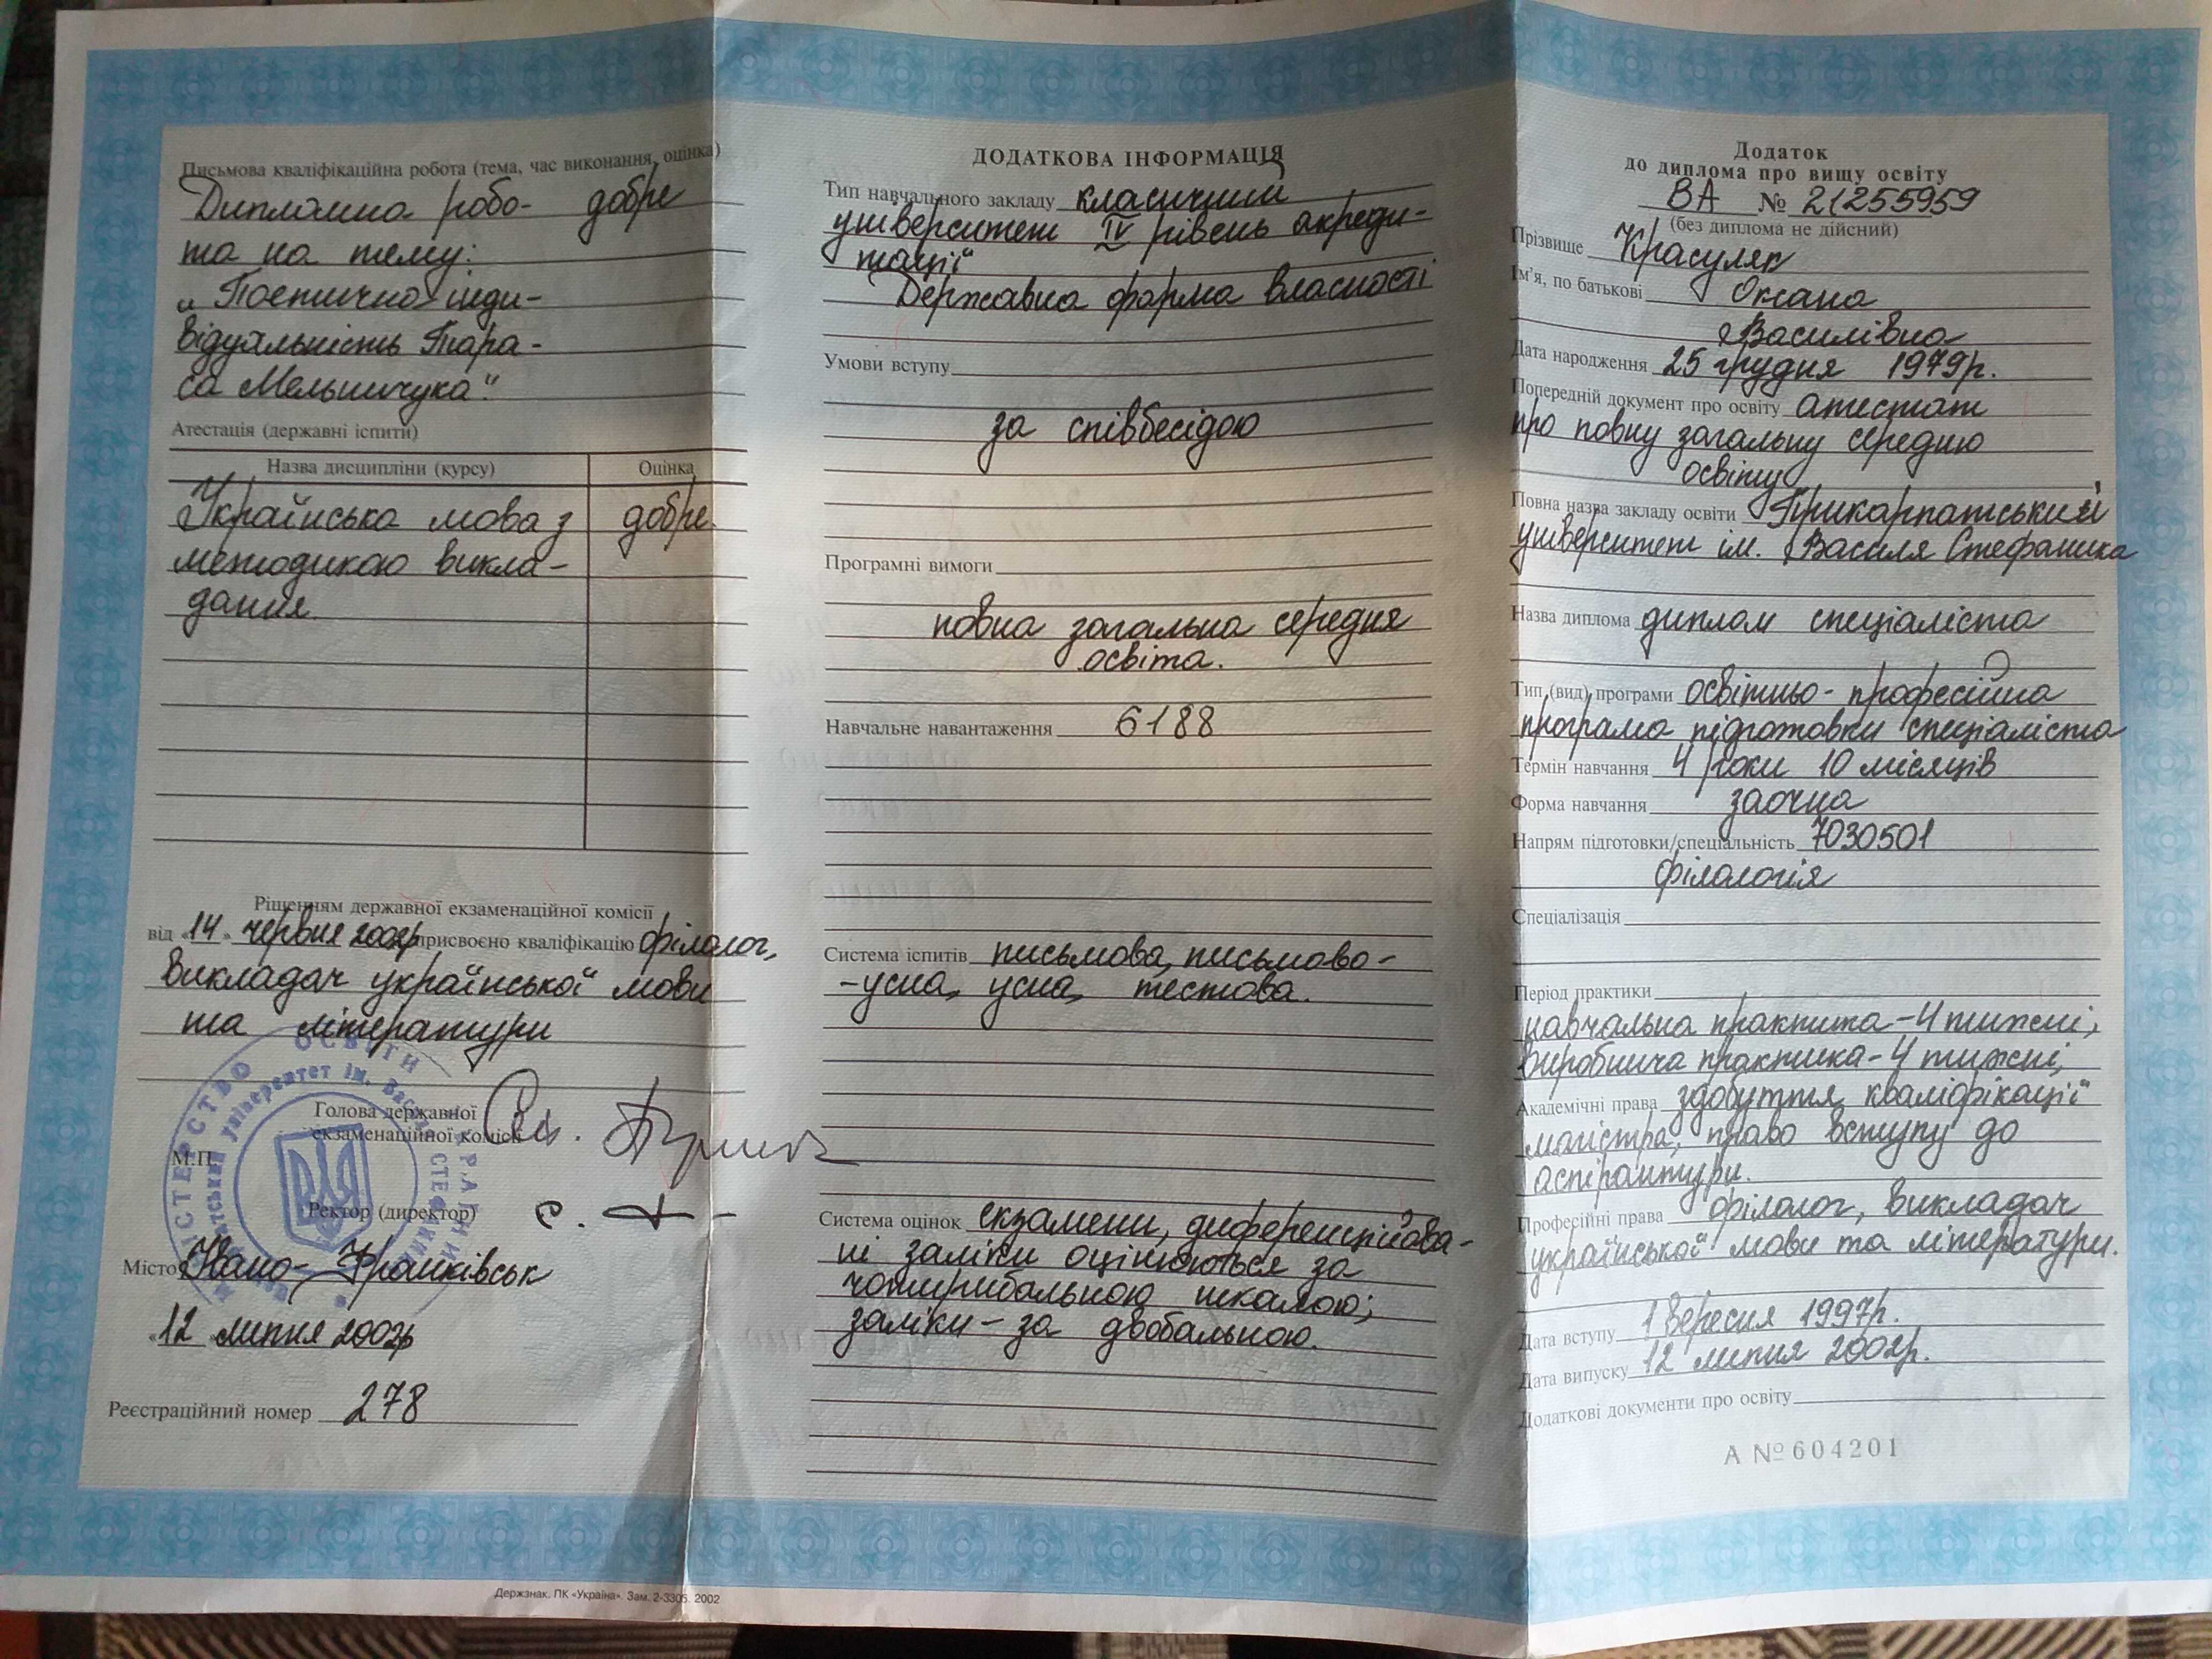 Письмова кваліфікаційна робота (тема, час виконання, оцінка)
Дипломна робо- добре
та на тему:
„Поетична інди-
відуальність Тара-
са Мельничука".
Атестація (державні іспити)
Назва дисципліни (курсу) Оцінка
Українська мова з добре.
методикою викла-
дання.
Рішенням державної екзаменаційної комісії
від «14» червня 2002р присвоєно кваліфікацію філолог,
викладач української мови
та літератури
Голова державної
екзаменаційної комісії
М.П.
Ректор (директор)
Місто Івано-Франківськ
«12 липня 2002р
Реєстраційний номер 278
МІНІСТЕРСТВО ОСВІТИ
університет ім. Василя
Держзнак. ПК «Україна». Зам. 2-3305. 2002
ДОДАТКОВА ІНФОРМАЦІЯ
Тип навчального закладу класичний
університет IV рівень акреди-
тації
Державна форма власності
Умови вступу
за співбесідою
Програмні вимоги
повна загальна середня
освіта.
Навчальне навантаження 6188
Система іспитів письмова, письмово-
-усна, усна, тестова.
Система оцінок екзамени, диференційова-
ні заліки оцінюються за
чотирибальною шкалою;
заліки - за двобальною.
Додаток
до диплома про вищу освіту
ВА № 21255959
(без диплома не дійсний)
Прізвище Красуляк
Ім'я, по батькові Оксана
Василівна
Дата народження 25 грудня 1979р.
Попередній документ про освіту атестат
про повну загальну середню
освіту
Повна назва закладу освіти Прикарпатський
університет ім. Василя Стефаника
Назва диплома диплом спеціаліста
Тип (вид) програми освітньо-професійна
програма підготовки спеціаліста
Термін навчання 4 роки 10 місяців
Форма навчання заочна
Напрям підготовки/спеціальність 7030501
філологія
Спеціалізація
Період практики
навчальна практика - 4 тижні,
виробнича практика - 4 тижні,
Академічні права здобуття кваліфікації
магістра, право вступу до
аспірантури.
Професійні права філолог, викладач
української мови та літератури.
Дата вступу 1 вересня 1997р.
Дата випуску 12 липня 2002р.
Додаткові документи про освіту
А № 604201